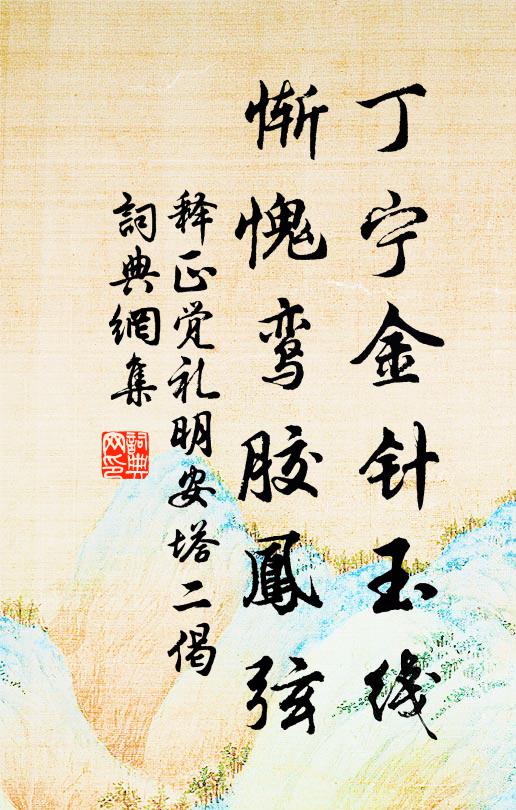 丁宁金针玉线
惭愧鸾胶鳳弦
释正觉礼明安塔二偈
詞典網集
詞典网印